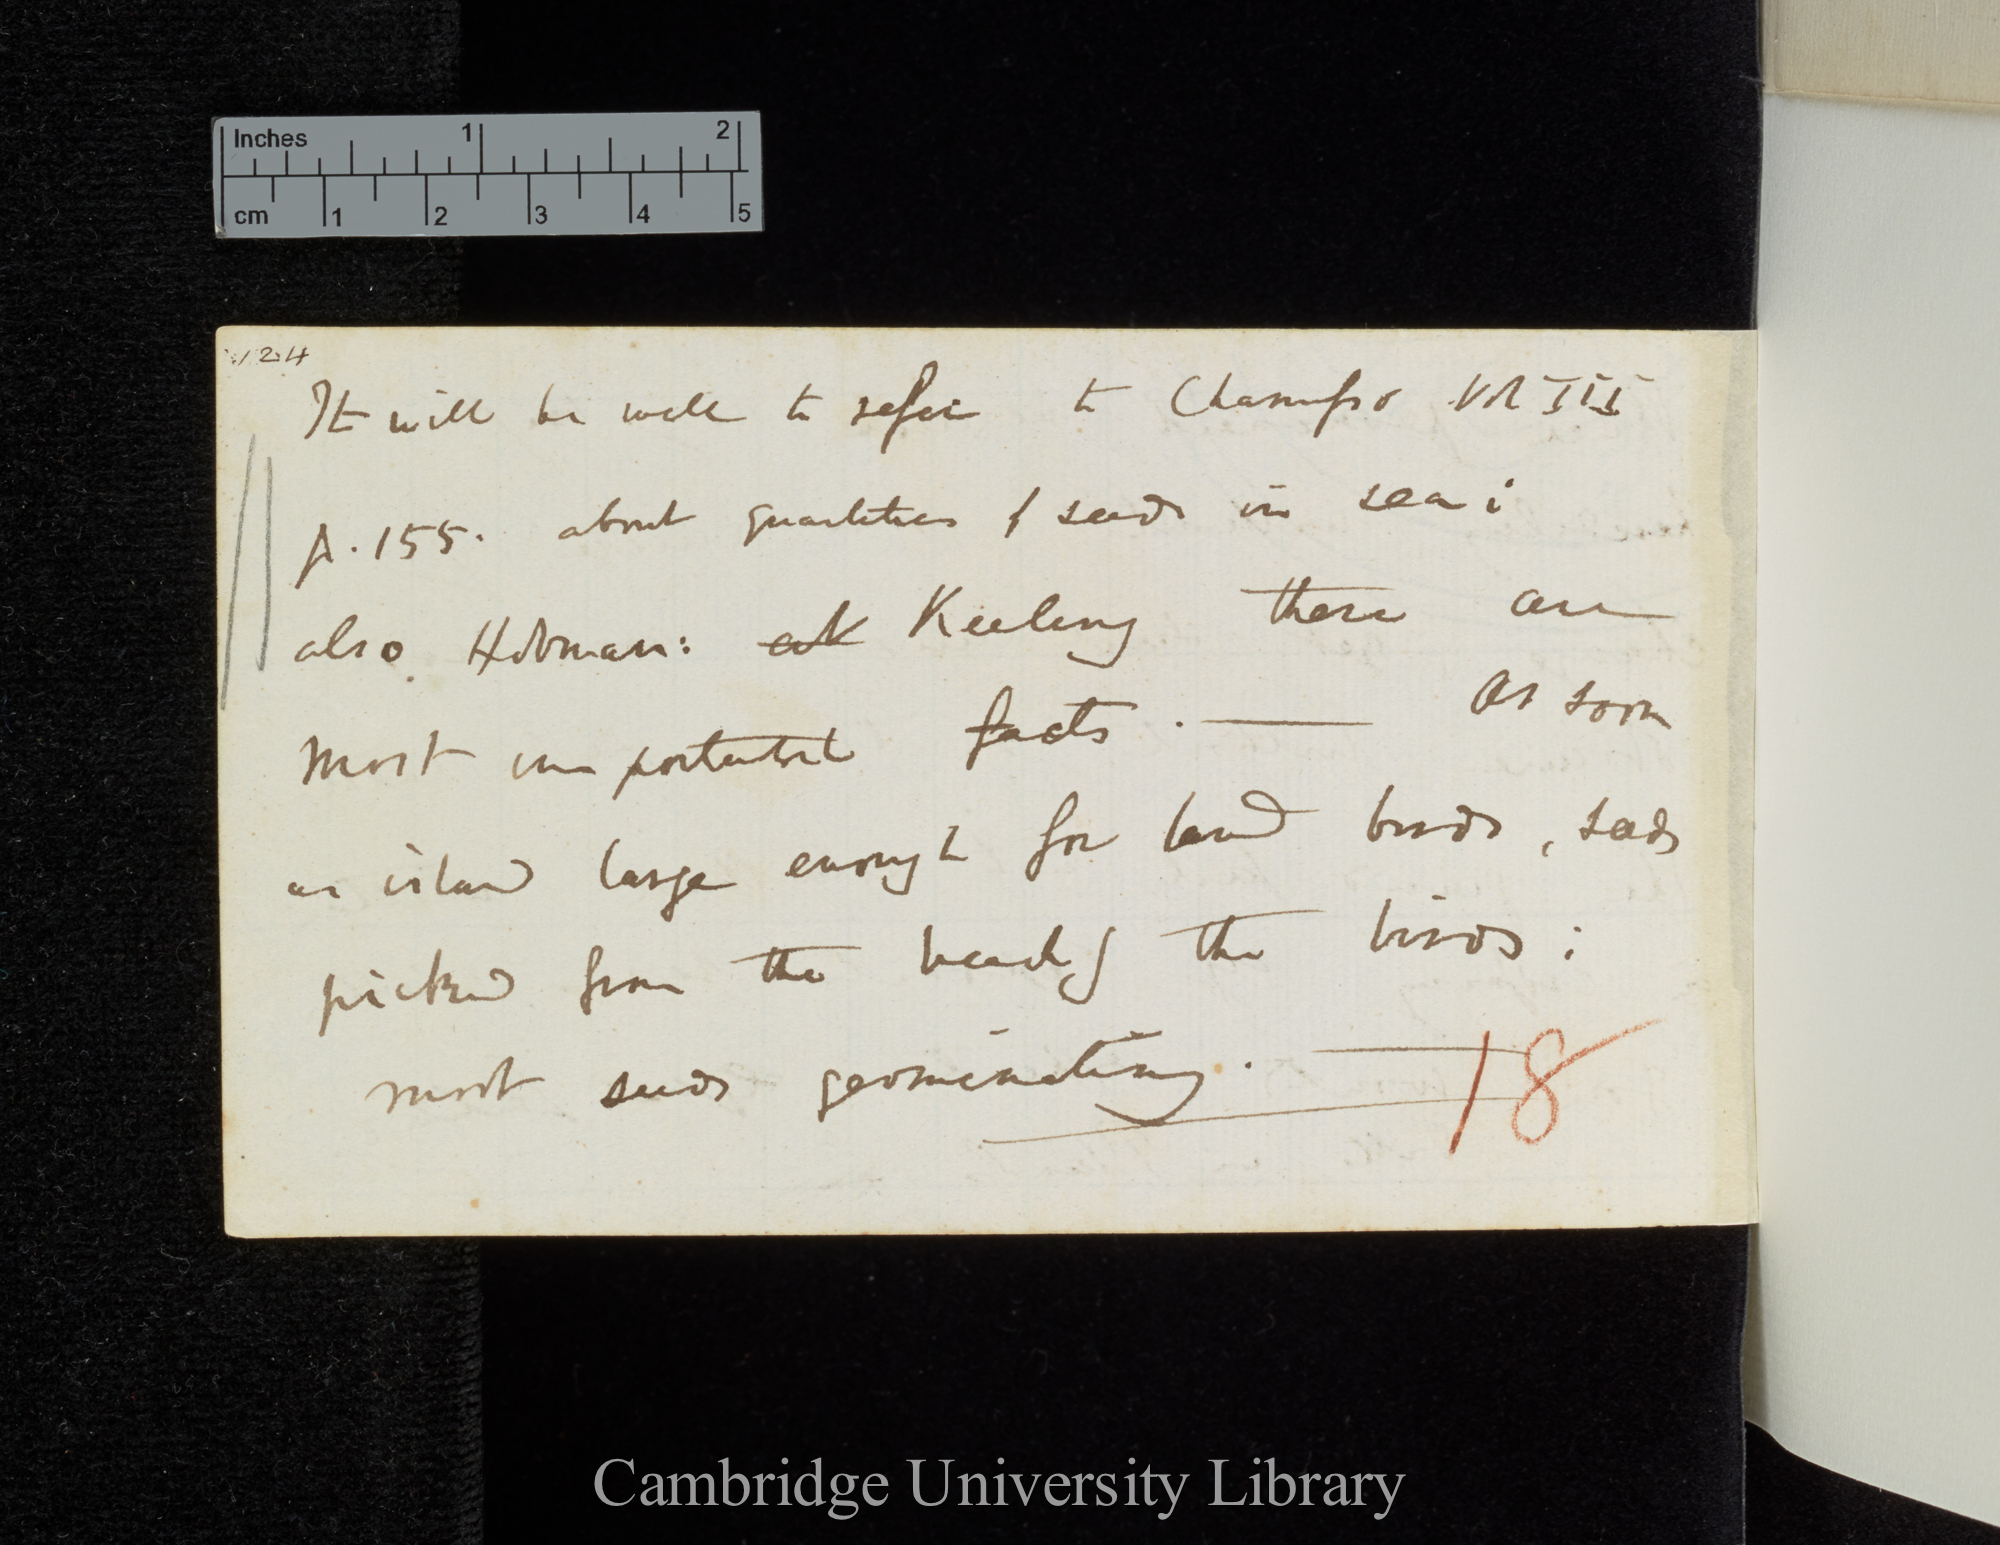 Inches 1 2
cm 1 2 3 4 5
124
It will be well to refer to Chamisso Vol III
p. 155. about quantities of seeds in sea:
also Holman: at Keeling there are
most important facts. — As soon
as island large enough for land birds, seeds
picked from the beach by the birds:
most seeds germinating. —
18
Cambridge University Library